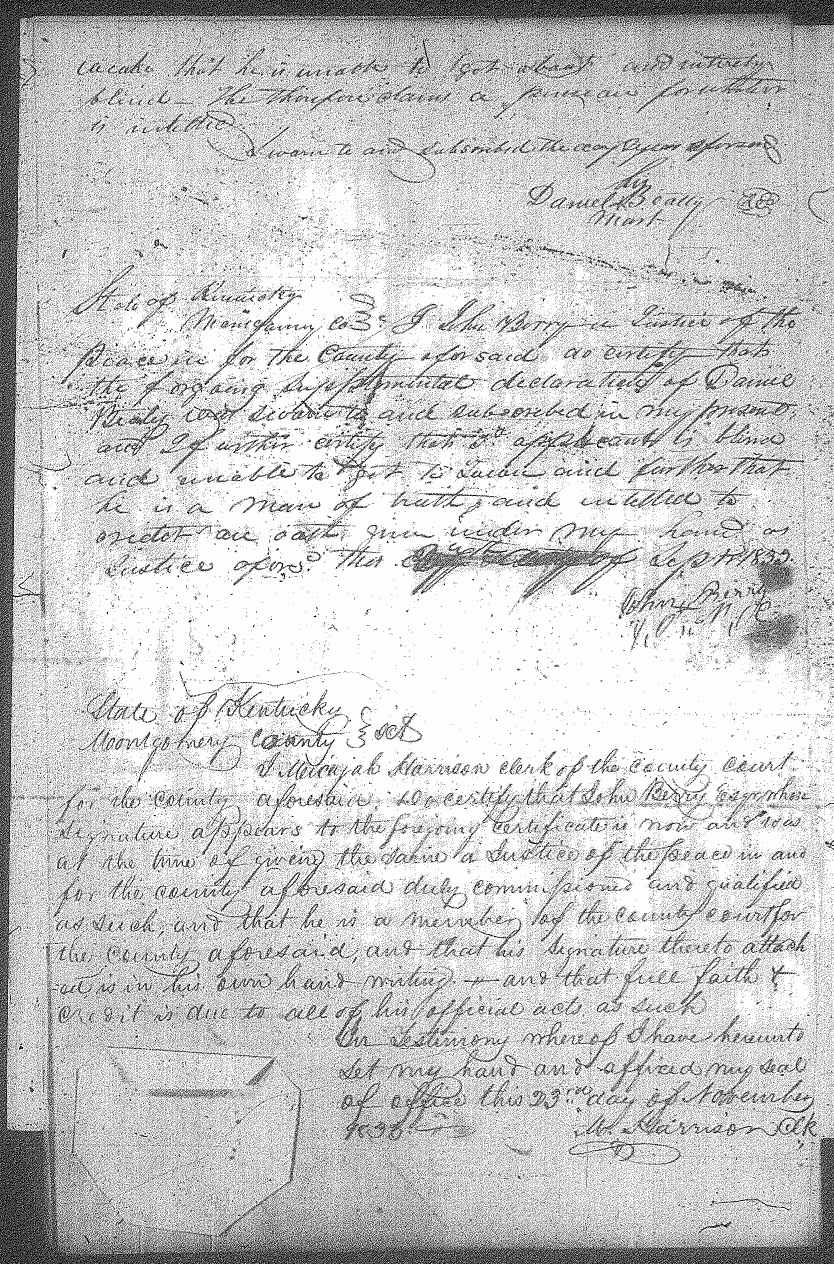 that he is unable to get about and intirely
blind - He therefore claims a for which
is intitled
Sworn to and subscribed the day & year aforesaid
his
Daniel Beatty
mark
State of Kentucky
Montgomery co I John Berry a Justice of the
peace in for the County aforsaid do certify that
the forgoing supplimental declaration of Daniel
Beaty was sworn to and subscribed in my presents,
and I further certify that sd applicant is blind
and unable to get to and further that
he is a man of truth, and intitled to
credet on oath given under my hand as
Justice aforsd this of Sept 1833.
John Berry
State of Kentucky
Montgomery County } sct
I Micajah Harrison clerk of the county court
for the county aforesaid, do certify that John Berry esqr whose
signature appears to the foregoing certificate is now and was
at the time of giving the same a Justice of the peace in and
for the county aforesaid duly commissioned and qualified
as such, and that he is a member of the county court for
the county aforesaid, and that his signature thereto attach
ed is in his own hand writing - and that full faith &
credit is due to all of his official acts as such
In testimony whereof I have hereunto
set my hand and affixed my seal
of office this 23rd day of November
M. Harrison Clk